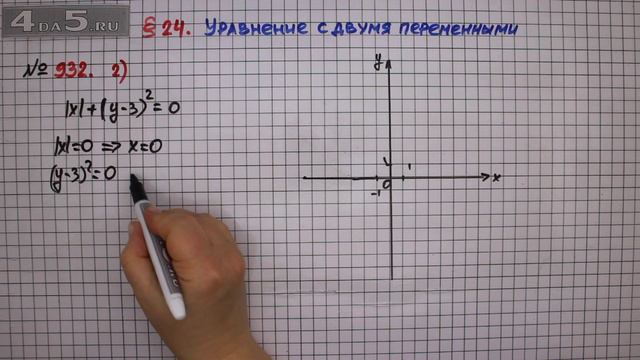 4DA5.RU
§ 24. Уравнение с двумя переменными
№ 932. 2)
|x|+(y-3)²=0
|x|=0 ⇒ x=0
(y-3)²=0
y
1
1
0
-1
x